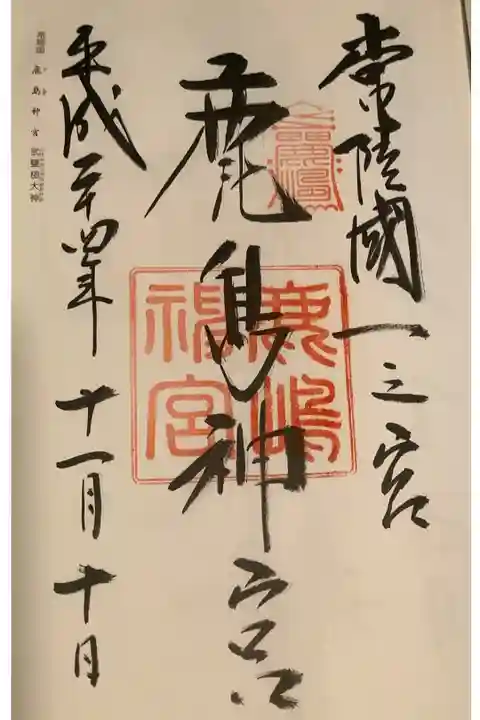 常陸國一之宮
鹿島神宮
平成二十四年 十一月 十日
鹿嶋神宮
鹿島神宮 武甕槌大神